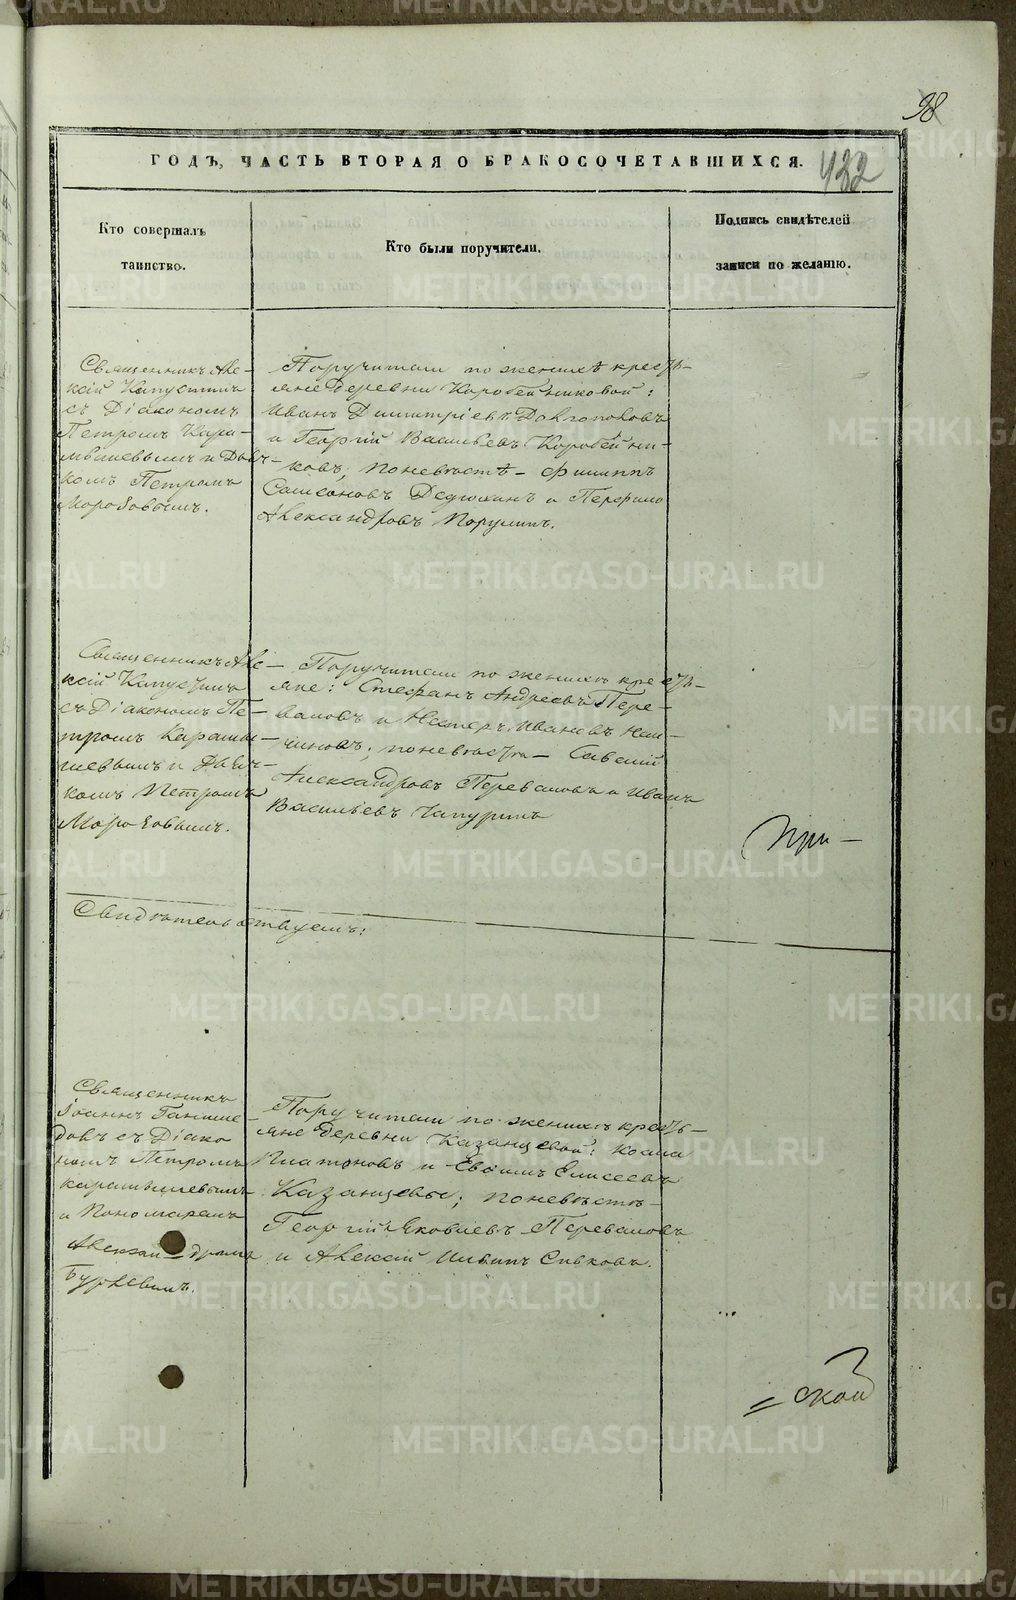 98
ГОДЪ, ЧАСТЬ ВТОРАЯ О БРАКОСОЧЕТАВШИХСЯ.
482
Кто совершалъ
таинство.
Кто были поручители.
Подпись свидѣтелей
записи по желанію.
Священникъ Але-
ксій Капустинъ
съ Діакономъ
Петромъ Кара-
мышевымъ и Дьяч-
комъ Петромъ
Морозовымъ.
Поручители по женихѣ кресть-
яне деревни Коробейниковой:
Иванъ Димитріевъ Долгополовъ
и Георгій Васильевъ Коробейни-
ковъ; по невѣстѣ – Филиппъ
Самсоновъ Дедюхинъ и Перфилій
Александровъ
Священникъ Але-
ксій Капустинъ
съ Діакономъ Пе-
тромъ Карамы-
шевымъ и Дьяч-
комъ Петромъ
Морозовымъ.
Поручители по женихѣ кресть-
яне: Стефанъ Андреевъ Пере-
валовъ и Нестеръ Ивановъ
по невѣстѣ – Савелій
Александровъ Переваловъ и Иванъ
Васильевъ Чапуринъ
При –
Свидѣтельствуемъ:
Священникъ
Іоаннъ
съ Діако
номъ Петромъ
Карамышевымъ
и Пономаремъ
Александромъ
Поручители по женихѣ кресть-
яне деревни Казанцевой: Косма
Платоновъ и Евѳимъ Елисеевъ
Казанцевы; по невѣстѣ –
Георгій Яковлевъ Переваловъ
и Алексій Сивковъ.
= ской
METRIKI.GASO-URAL.RU